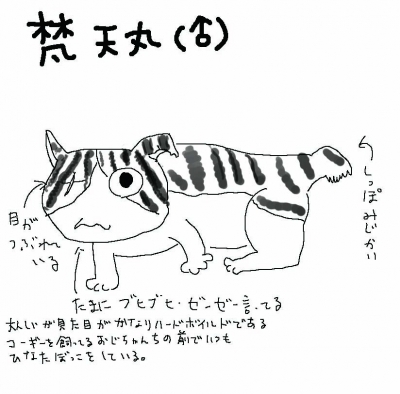 梵天丸(♂)
目が
つぶれて
いる
しっぽみじかい
たまにブヒブヒ・ゼーゼー言ってる
大人しいが見た目がかなりハードボイルドである
コーギーを飼ってるおじちゃんちの前でいつも
ひなたぼっこをしている。